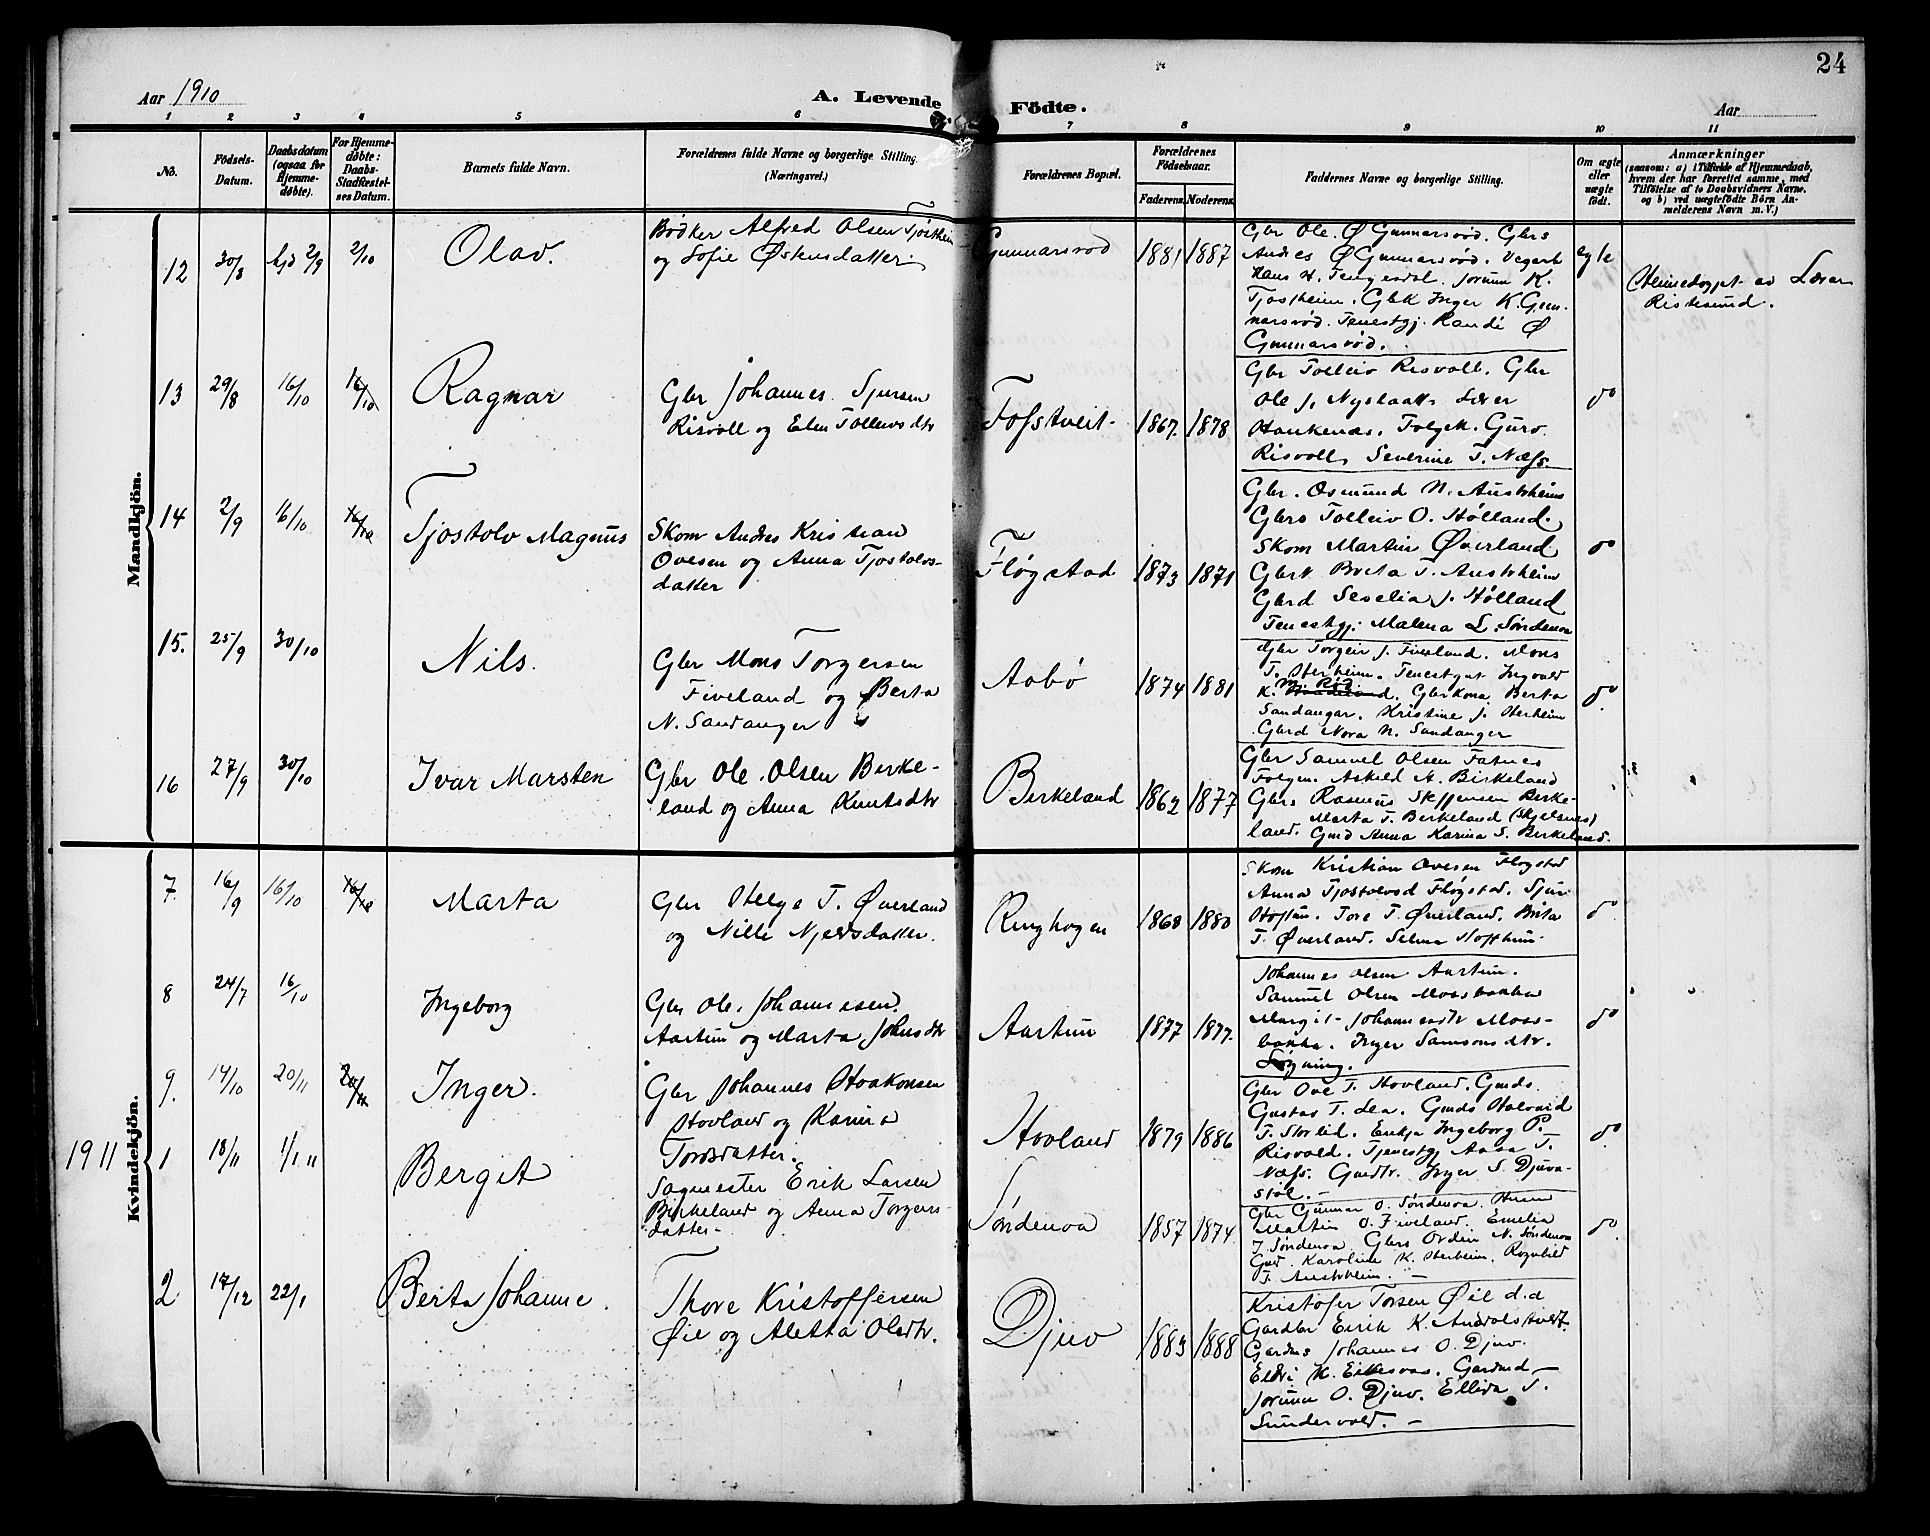 24
Aar 1910
A. Levende Födte.
Aar
1 2 3 4 5 6 7 8 9 10 11
No.
Födsels-Datum.
Daabsdatum (ogsaa for Hjemme-døbte).
For Hjemme-døbte: Daabs-Stadfæstel-ses Datum.
Barnets fulde Navn.
Forældrenes fulde Navne og borgerlige Stilling.
(Næringsvei.)
Forældrenes Bopæl.
Forældrenes Födselsaar.
Faderens. Moderens.
Faddernes Navne og borgerlige Stilling.
Om ægte eller uægte födt.
Anmærkninger
(saasom: a) i Tilfælde af Hjemmedaab,
hvem der har forrettet samme, med
Tilföielse af to Daabsvidners Navne.
og b) ved uægtefødte Börn An-
melderens Navn m. V.)
Mandkjön.
12 30/8 2/9 2/10 Olav.
Bødker Alfred Olsen Tjøstheim
og Sofie Østensdatter.
Gunnarsvod 1881 1887
Gbr Ole Ø Gunnarsvød. Gbrs
Andres Ø Gunnarsvød.
Hans H. Tengesdal. Jorunn K.
Tjøstheim. Gbk Inger K. Gun-
narsvød. Tenestgj. Randi Ø
Gunnarsvød.
egte
Heimedøypt av Lærer
Ristesund.
13 29/8 16/10 16/10 Ragnar
Gbr Johannes Sjursen
Risvoll og Elen Tolleivsdtr
Fosstveit 1867. 1878
Gbr Tolleiv Risvoll. Gbr
Ole J. Nystaa Lærer
Haukenæs. Folgek. Guro
Risvoll, Severine T. Næss.
do
14 2/9 16/10 16/10 Tjostolv Magnus
Skom Andres Kristian
Ovesen og Anna Tjostolvs-
datter
Fløgstad 1873 1871
Gbr. Osmund N. Austrheim
Gbrs Tolleiv O. Hølland.
Skom Martin Øverland
Gbrk Brita T. Austrheim
Gbrd Seselia J. Hølland
Tenestgj. Malena L. Søndenaa
do
15. 25/9 30/10 Nils.
Gbr Mons Torgersen
Fiveland og Berta
N. Sandanger
Aabø 1874 1881
Gbr Torgeir J. Fiveland. Mons
T. Sterheim. Tenestgut Ingvald
K. M. Rød. Gbrkona Berta
Sandangar. Kristine J. Sterheim
Gbrd Nora N. Sandanger
do.
16 27/9 30/10 Ivar Marsten
Gbr Ole Olsen Birke-
land og Anna Knutsdtr
Birkeland 1862 1877
Gbr Samuel Olsen Fatnes
Folgem. Askild A. Birkeland
Gbrs Rasmus Steffensen Birke-
land. Marta T. Birkeland (Skjelsnes)
Gmd Anna Karina S. Birkeland.
Kvindekjön.
7. 16/9 16/10 16/10 Marta
Gbr Helge T. Øverland
og Nille Njelsdatter.
Ringhogen 1868 1880
Skom Kristian Ovesen Fløgstad
Anna Tjostolvsd Fløgstad. Sjur
Hoftun. Tore T. Øverland. Brita
T. Øverland. Selma Hoftun.
do
8 24/7 16/10 Ingeborg
Gbr Ole Johannesen
Aartun og Marta Johnsdtr
Aartun 1877 1877.
Johannes Olsen Aartun.
Samuel Olsen Moesbakka
Margit Johannesdtr Moes-
bakka. Inger Samsonsdtr.
Løgning.
do
9. 14/10 20/11 20/11 Inger.
Gbr Johannes Haakonsen
Hovland og Karina
Torsdatter.
Hovland 1879 1886
Gbr Ove T. Hovland. Gmds
Gustav T. Lea. Gmds Halvard
T. Storlid. Enkja Ingeborg P.
Risvold. Tjenestgj Aasa T.
Næss. Gmdtr. Inger S. Djuva-
støl.
do
1911
1 18/11 1/1 11 Bergit
Sagmester Erik Larsen
Birkeland og Anna Torgers-
datter
Søndenaa 1857 1874
Gbr Gunnar O. Søndenaa.
Martin O. Fiveland. Emelia
J. Søndenaa Gbrs Ordin N. Søndenaa
Gmd. Karoline K. Sterheim. Rognhild
T. Austrheim.
do
2 17/12 22/1 Berta Johanne.
Thore Kristoffersen
Øie og Aletta Olsdtr.
Djuv 1883 1888
Kristofer Torsen Øie d.d
Gardbr Eirik K. Andvolstveit
Gardms Johannes O. Djuv.
Eldri K. Eikesvos. Gardmd
Jorunn O. Djuv. Ellida T.
Sundervold.